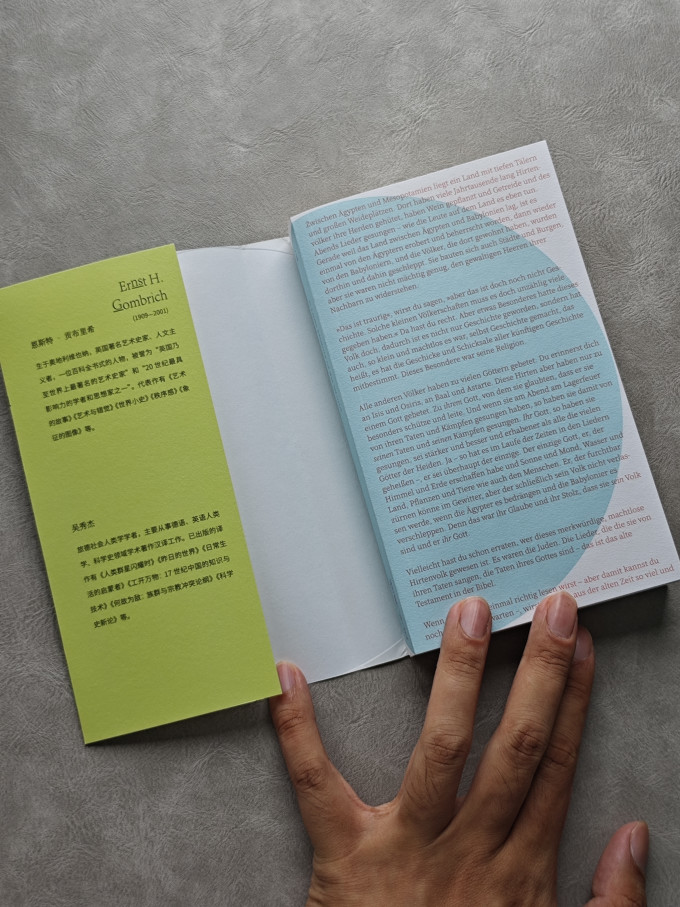 Ernst H.
Gombrich
(1909—2001)
恩斯特·贡布里希
生于奥地利维也纳，英国著名艺术史家、人文主
义者。一位百科全书式的人物，被誉为“英国乃
至世界上最著名的艺术史家”和“20 世纪最具
影响力的学者和思想家之一”。代表作有《艺术
的故事》《艺术与错觉》《世界小史》《秩序感》《象
征的图像》等。
吴秀杰
旅德社会人类学学者，主要从事德语、英语人类
学、科学史领域学术著作汉译工作。已出版的译
作有《人类群星闪耀时》《昨日的世界》《日常生
活的启蒙者》《工开万物：17 世纪中国的知识与
技术》《何故为敌：族群与宗教冲突论纲》《科学
史新论》等。
Zwischen Ägypten und Mesopotamien liegt ein Land mit tiefen Tälern
und großen Weideplätzen. Dort haben viele Jahrtausende lang Hirten-
völker ihre Herden gehütet, haben Wein gepflanzt und Getreide und des
Abends Lieder gesungen – wie die Leute auf dem Land es eben tun.
Gerade weil das Land zwischen Ägypten und Babylonien lag, ist es
einmal von den Ägyptern erobert und beherrscht worden, dann wieder
von den Babyloniern, und die Völker, die dort gewohnt haben, wurden
dorthin und dahin geschleppt. Sie bauten sich auch Städte und Burgen,
aber sie waren nicht mächtig genug, den gewaltigen Heeren ihrer
Nachbarn zu widerstehen.
»Das ist traurig«, wirst du sagen, »aber das ist doch noch nicht Ges-
chichte. Solche kleinen Völkerschaften muss es doch unzählig viele
gegeben haben.« Da hast du recht. Aber etwas Besonderes hatte dieses
Volk doch, dadurch ist es nicht nur Geschichte geworden, sondern hat
auch, so klein und machtlos es war, selbst Geschichte gemacht, das
heißt, es hat die Geschicke und Schicksale aller künftigen Geschichte
mitbestimmt. Dieses Besondere war seine Religion.
Alle anderen Völker haben zu vielen Göttern gebetet. Du erinnerst dich
an Isis und Osiris, an Baal und Astarte. Diese Hirten aber haben nur zu
einem Gott gebetet. Zu ihrem Gott, von dem sie glaubten, dass er sie
besonders schütze und leite. Und wenn sie am Abend am Lagerfeuer
von ihren Taten und Kämpfen gesungen haben, so haben sie damit von
seinen Taten und seinen Kämpfen gesungen. Ihr Gott, so haben sie
gesungen, sei stärker und besser und erhabener als alle die vielen
Götter der Heiden. Ja – so hat es im Laufe der Zeiten in den Liedern
geheißen –, er sei überhaupt der einzige. Der einzige Gott, er, der
Himmel und Erde erschaffen habe und Sonne und Mond, Wasser und
Land, Pflanzen und Tiere wie auch den Menschen. Er, der furchtbar
zürnen könne im Gewitter, aber der schließlich sein Volk nicht verlas-
sen werde, wenn die Ägypter es bedrängen und die Babylonier es
verschleppen. Denn das war ihr Glaube und ihr Stolz, dass sie sein Volk
sind und er ihr Gott.
Vielleicht hast du schon erraten, wer dieses merkwürdige, machtlose
Hirtenvolk gewesen ist. Es waren die Juden. Die Lieder, die sie von
ihren Taten sangen, die Taten ihres Gottes sind – das ist das alte
Testament in der Bibel.
Wenn einmal richtig lesen wirst – aber damit kannst du
noch warten –, wirst aus der alten Zeit so viel und